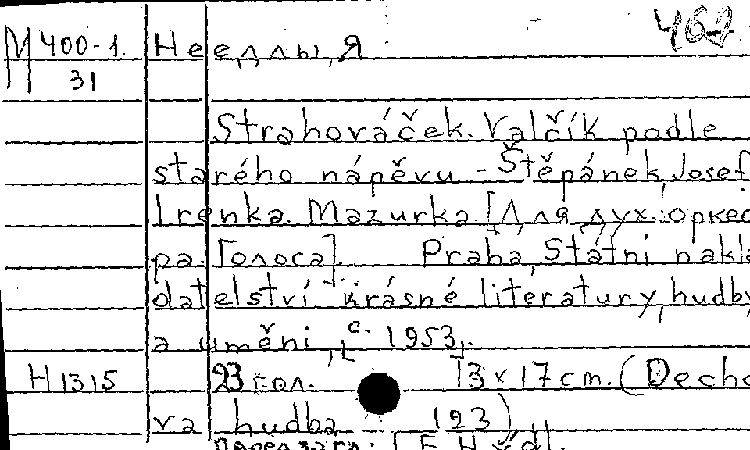 М 400-1. Неедлы, Я. 462
31
Strahováček. Valčík podle
starého nápěvu - Štěpánek, Josef
Irenka. Mazurka. [Для дух. оркес
ра. Голоса]. Praha, Státni nakla
datelství krásné literatury, hudby
a umění, c. 1953.
Н 1315 23 гол. 13 x 17 cm. (Decho
va hudba 193)
Перед загл.: